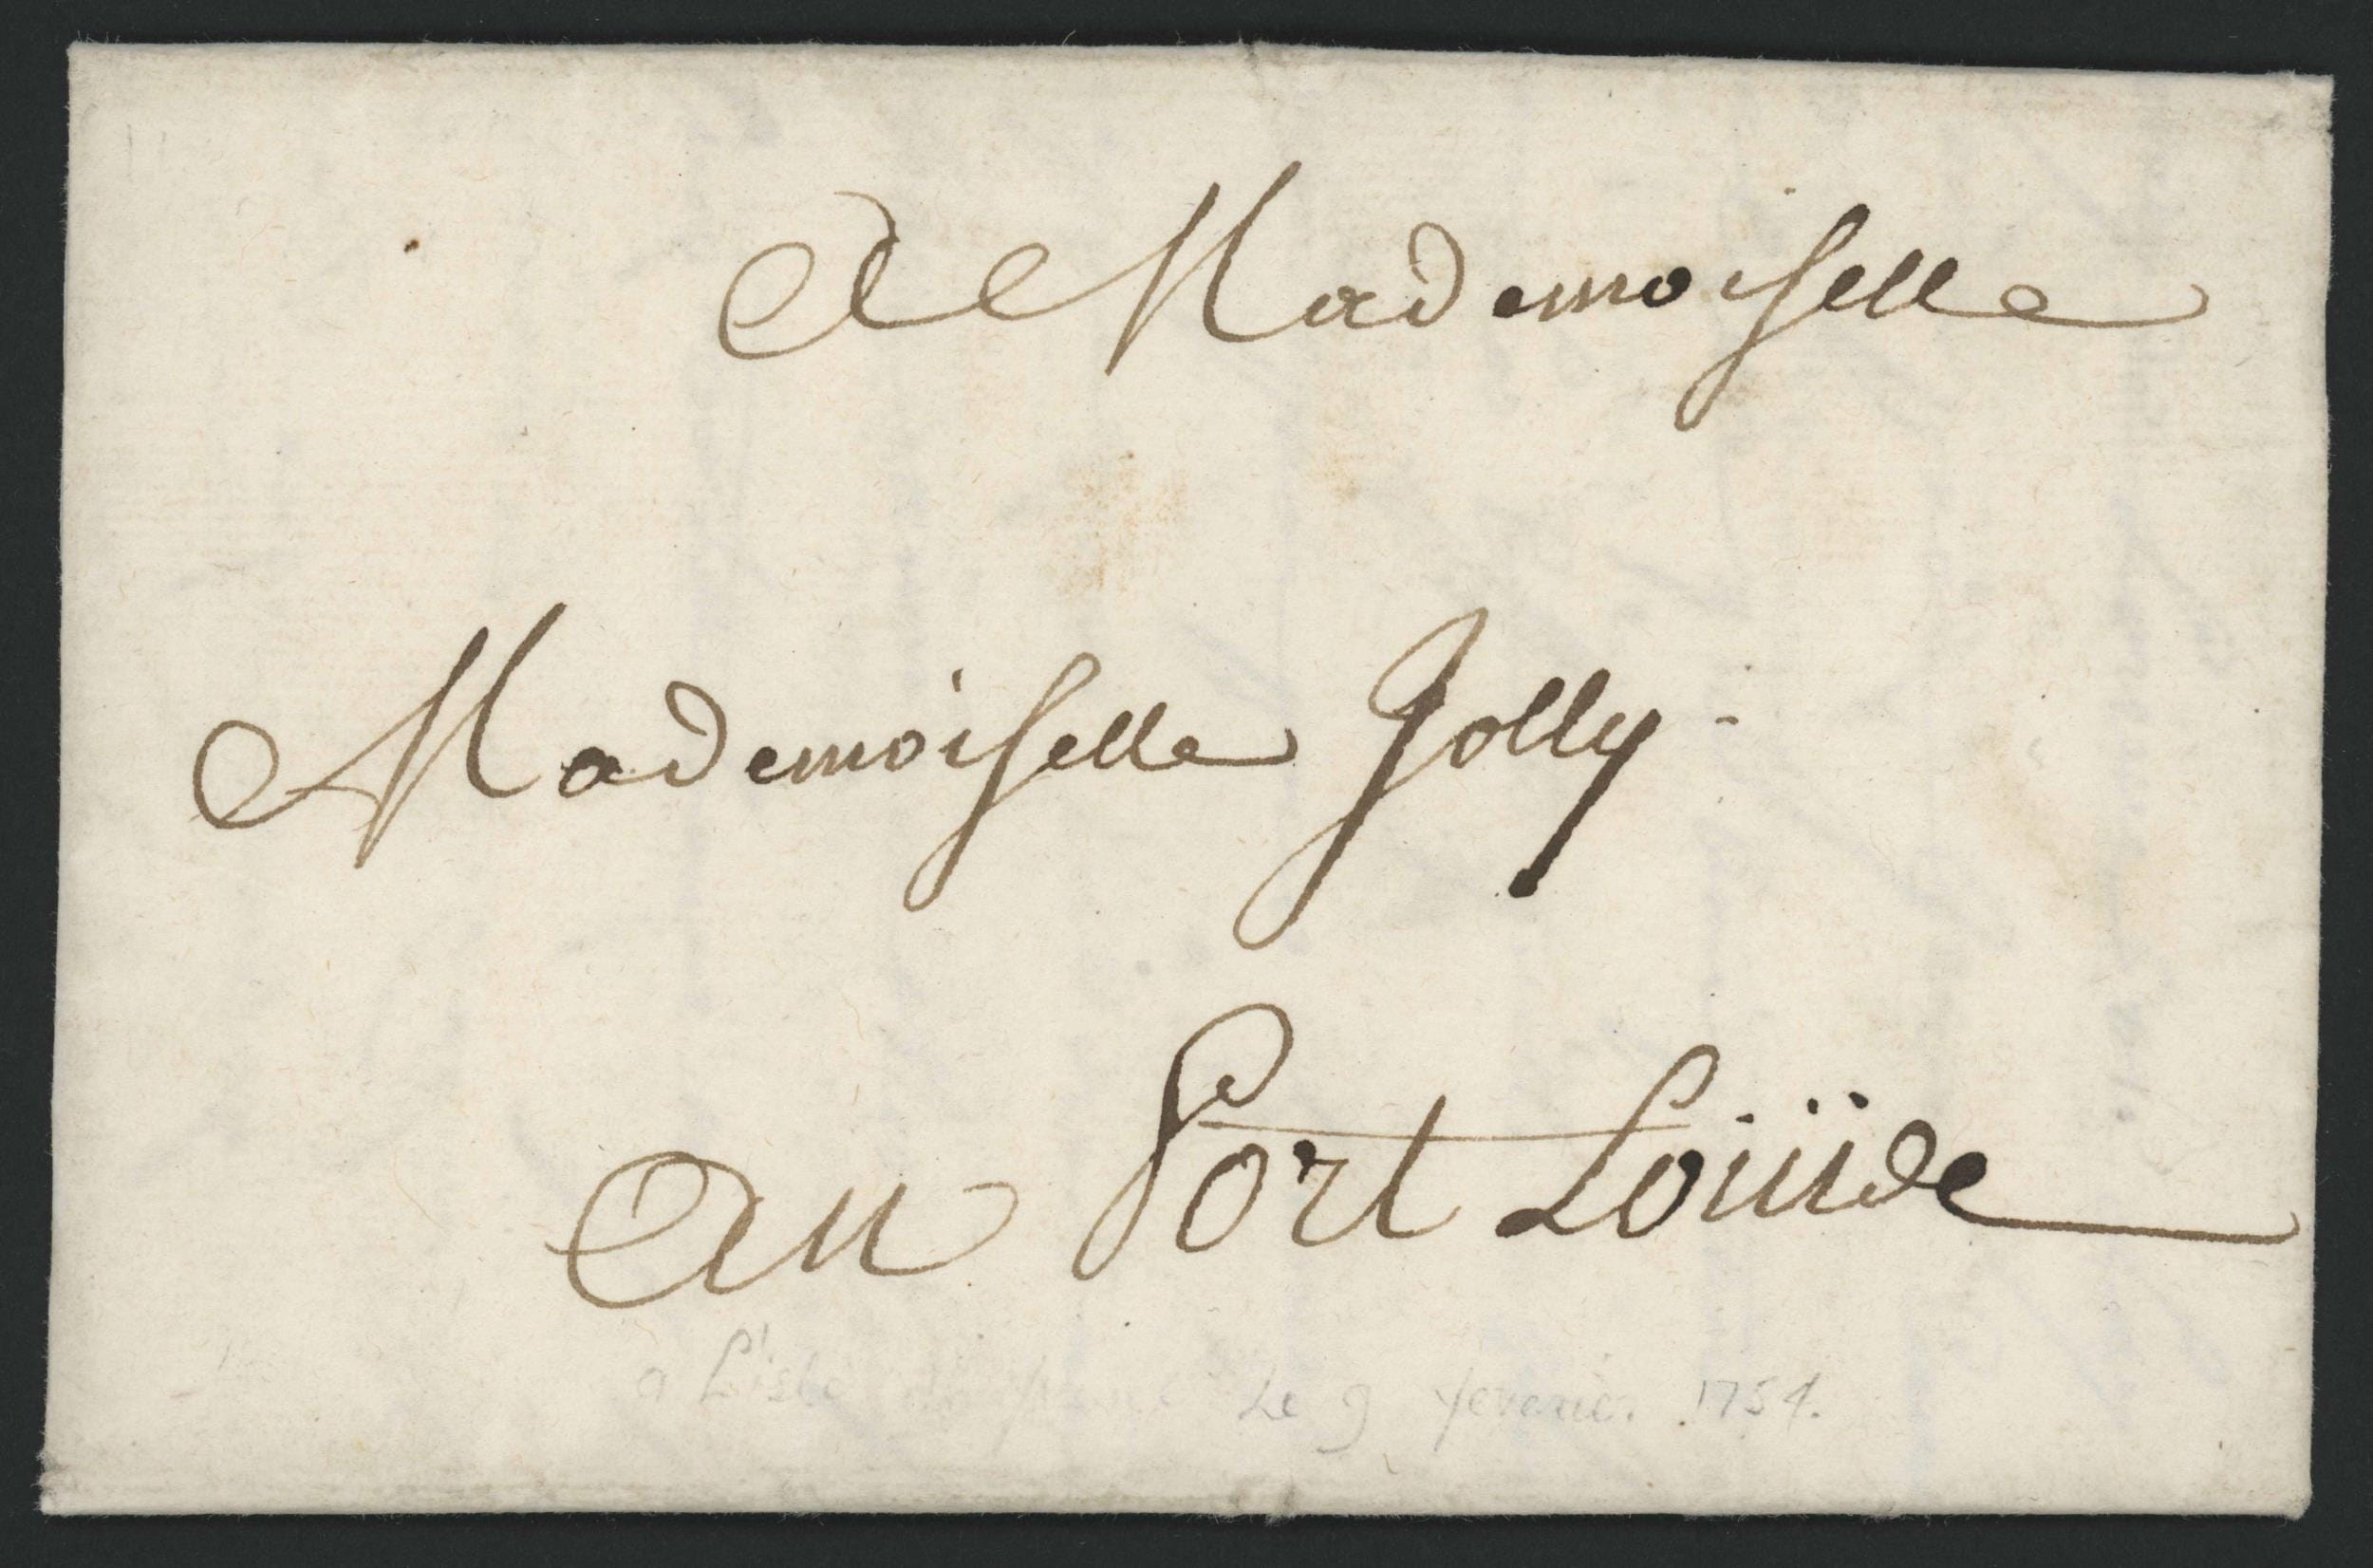 A Mademoiselle
Mademoiselle Jolly
Au Port Loüide
a L'isle de france Le 9 fevrier 1754.